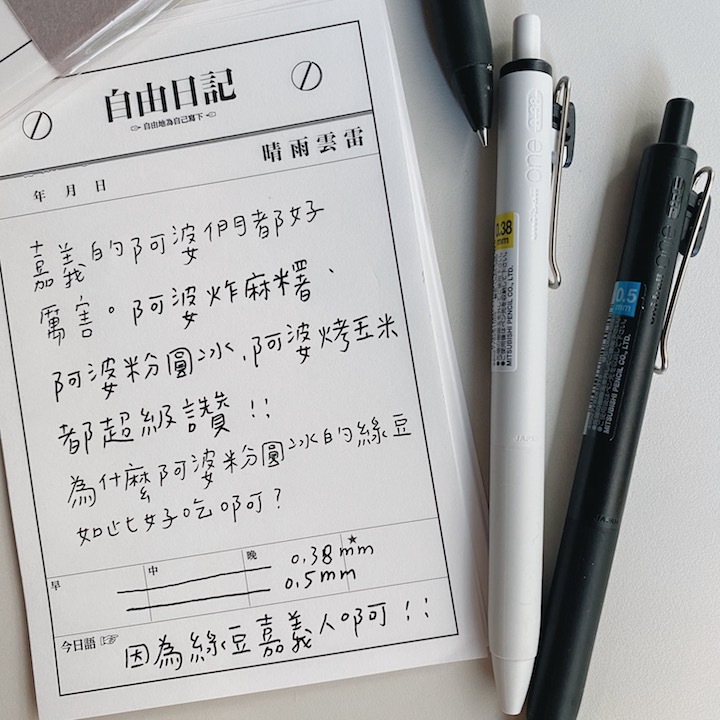 自由日記
自由地為自己寫下
晴雨雲雷
年 月 日
嘉義的阿婆們都好
厲害。阿婆炸麻糬、
阿婆粉圓冰,阿婆烤玉米
都超級讚!!
為什麼阿婆粉圓冰的綠豆
如此好吃啊?
早 中 晚
0.38mm
0.5mm
今日語 ☞ 因為綠豆嘉義人啊!!
one
0.38
mm
MITSUBISHI PENCIL CO., LTD.
JAPAN
one
0.5
mm
MITSUBISHI PENCIL CO., LTD.
JAPAN